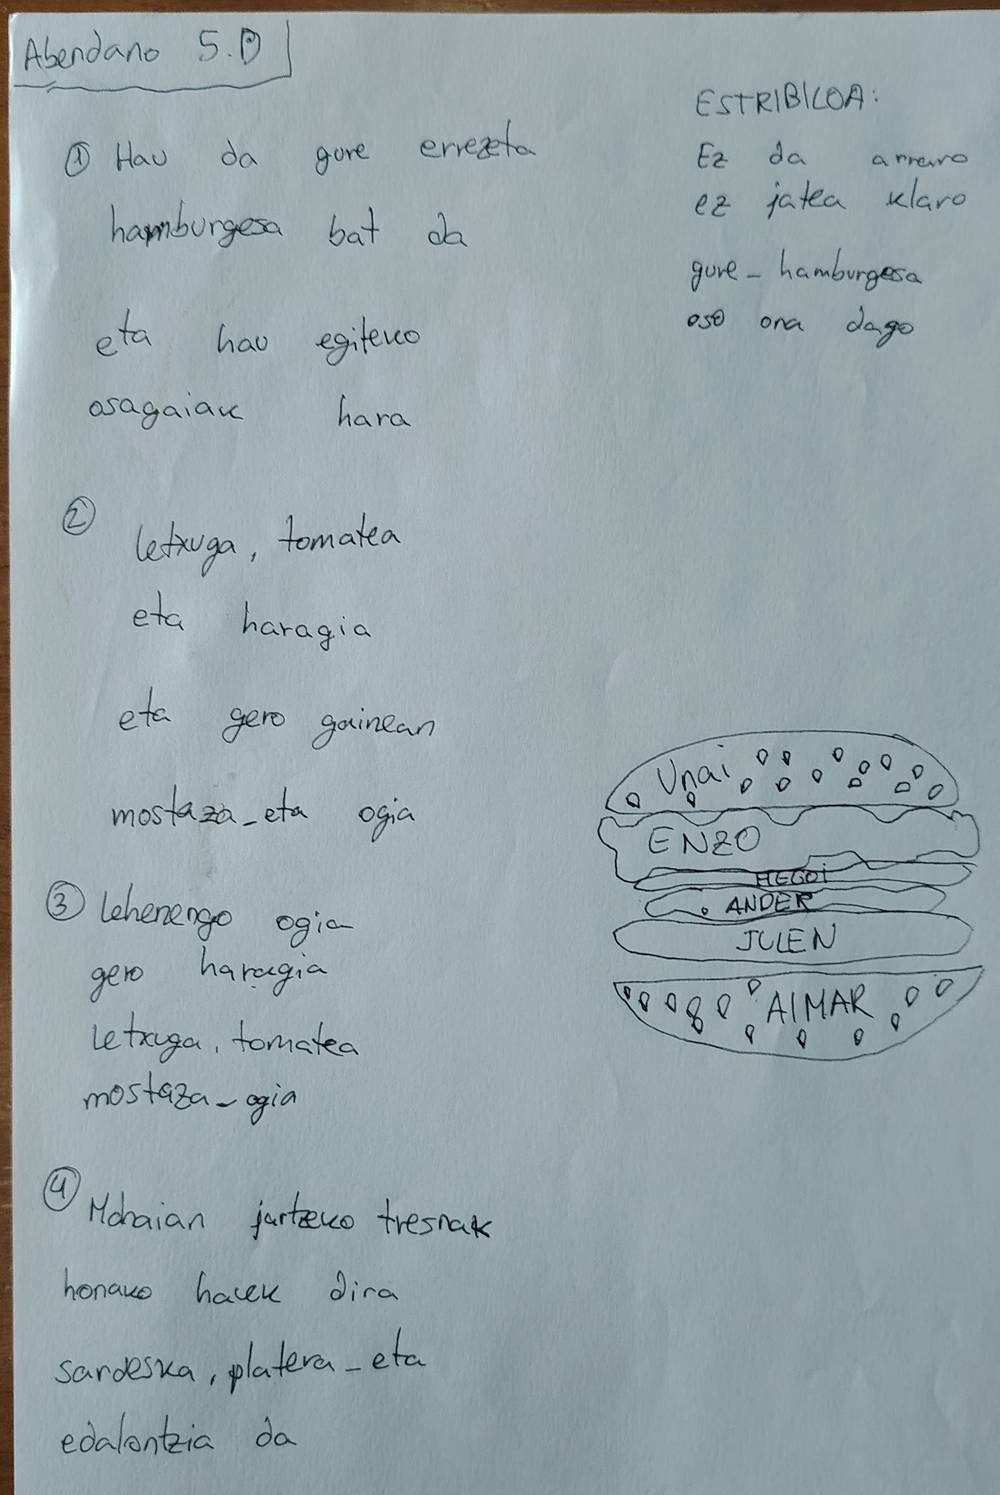 Abendano 5.D
① Hau da gure errezeta
hamburgesa bat da
eta hau egiteko
osagaiak hara
② letxuga, tomatea
eta haragia
eta gero gainean
mostaza-eta ogia
③ lehenengo ogia
gero haragia
letxuga, tomatea
mostaza-ogia
④ Mahaian jartzeko tresnak
honako hauek dira
sardeska, platera-eta
edalontzia da
ESTRIBILOA:
Ez da arraro
ez jatea klaro
gure-hamburgesa
oso ona dago
Unai
ENZO
HEGOI
ANDER
JULEN
AIMAR